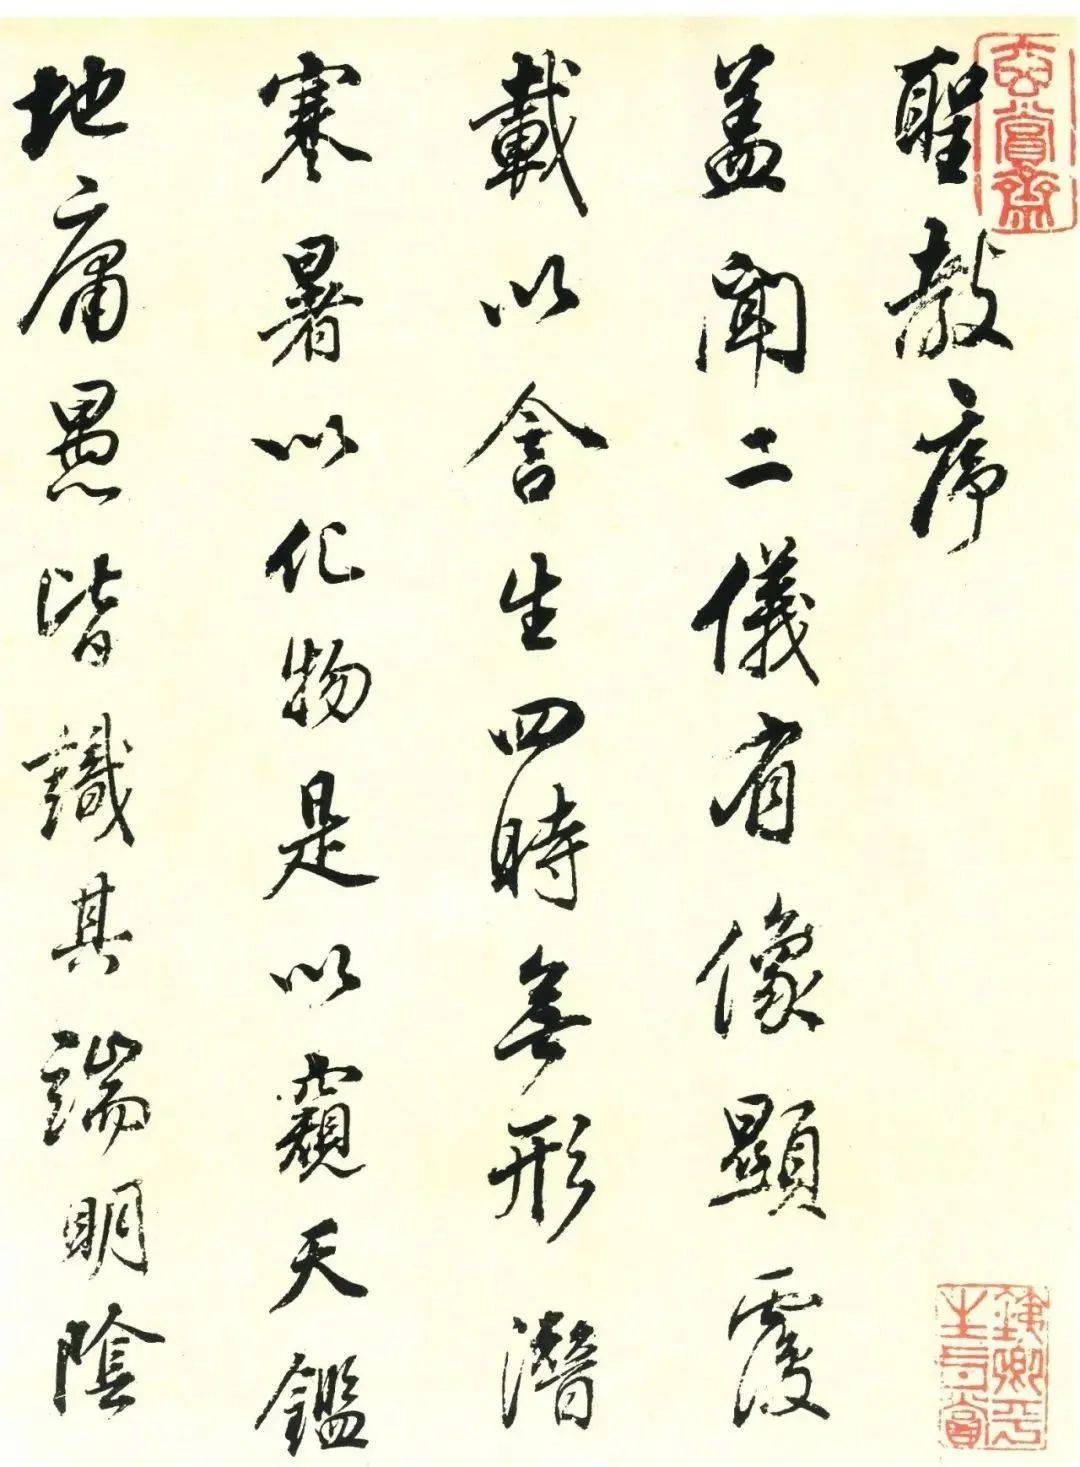 聖教序
盖聞二儀有像顯覆
載以含生四時無形潛
寒暑以化物是以窺天鑑
地庸愚皆識其端明陰
玄賞齋